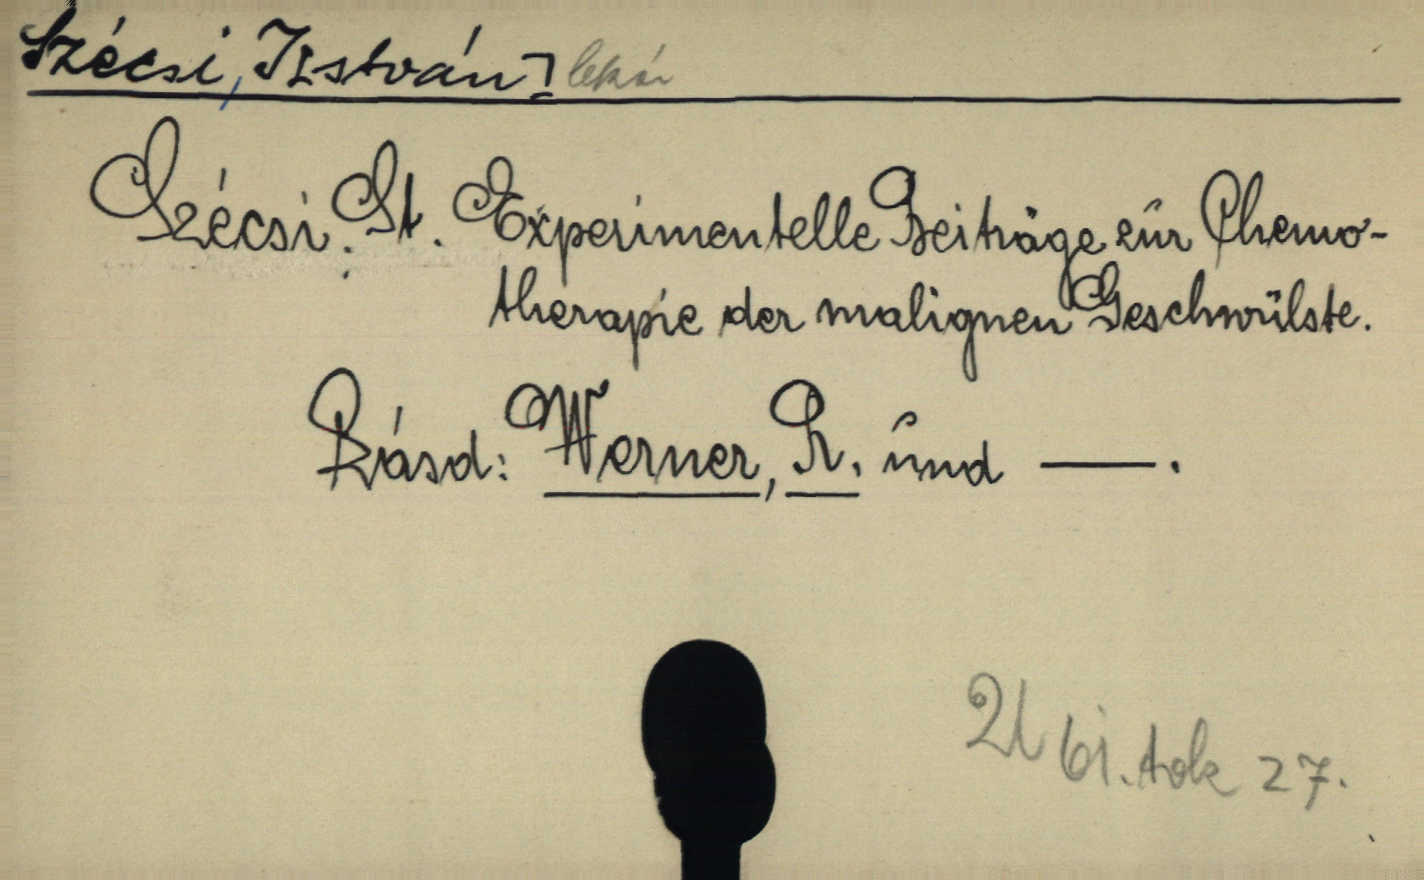 Szécsi, István] lekár
Szécsi. St. Experimentelle Beiträge zur Chemo-
therapie der malignen Geschwülste.
Lásd: Werner, R. und —.
21 bi. tok 27.